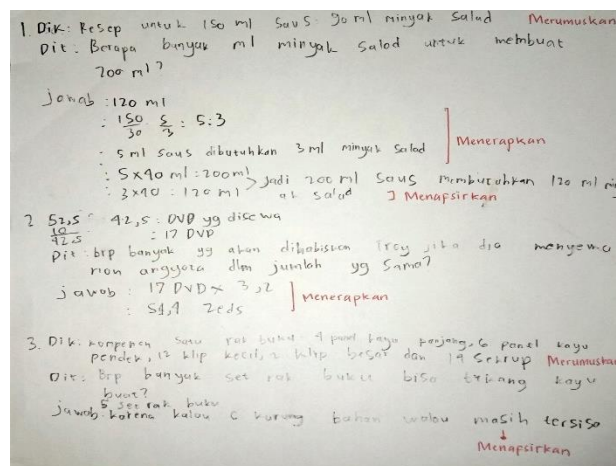 1. Dik: Resep untuk 150 ml saus: 90 ml minyak salad Merumuskan
Dit: Berapa banyak ml minyak salad untuk membuat
200 ml?
jawab: 120 ml
: 150/30 5/3 : 5:3
: 5 ml saus dibutuhkan 3 ml minyak salad Menerapkan
: 5x40 ml = 200 ml
: 3x40 : 120 ml > Jadi 200 ml saus membutuhkan 120 ml
salad ] Menapsirkan
2 52,5 42,5 : DVD yg disewa
10
42,5 : 17 DVD
Dit: brp banyak yg akan dihabiskan jika dia
anggota dlm jumlah yg sama?
jawab: 17 DVD x 3,2
: 54,4 zeds Menerapkan
3. Dik: satu rak buku 4 panel kayu panjang, 6 panel kayu
pendek, 12 klip kecil, 2 klip besar dan 14 sekrup Merumuskan
Dit: Brp banyak set rak buku bisa tukang kayu
buat?
5 set rak buku
jawab: karena kalau 6 kurang bahan walau masih tersisa
Menapsirkan